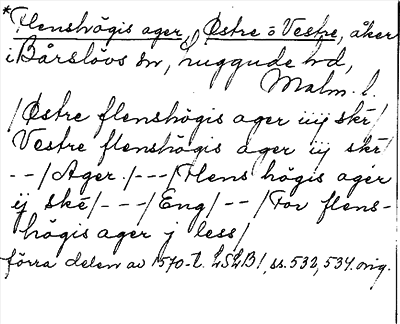 *Flenshögis ager, Østre o Vestre, åker
i Bårslövs sn, Luggude hd,
Malm. l.
/Østre flenshögis ager iiij skr/
Vestre flenshögis ager iij skr/
--/Ager./---/Flens högis ager
ij skē/---/Eng/--/For flens-
högis ager j less/
förra delen av 1570-t. LSLB1, ss. 532, 534. orig.